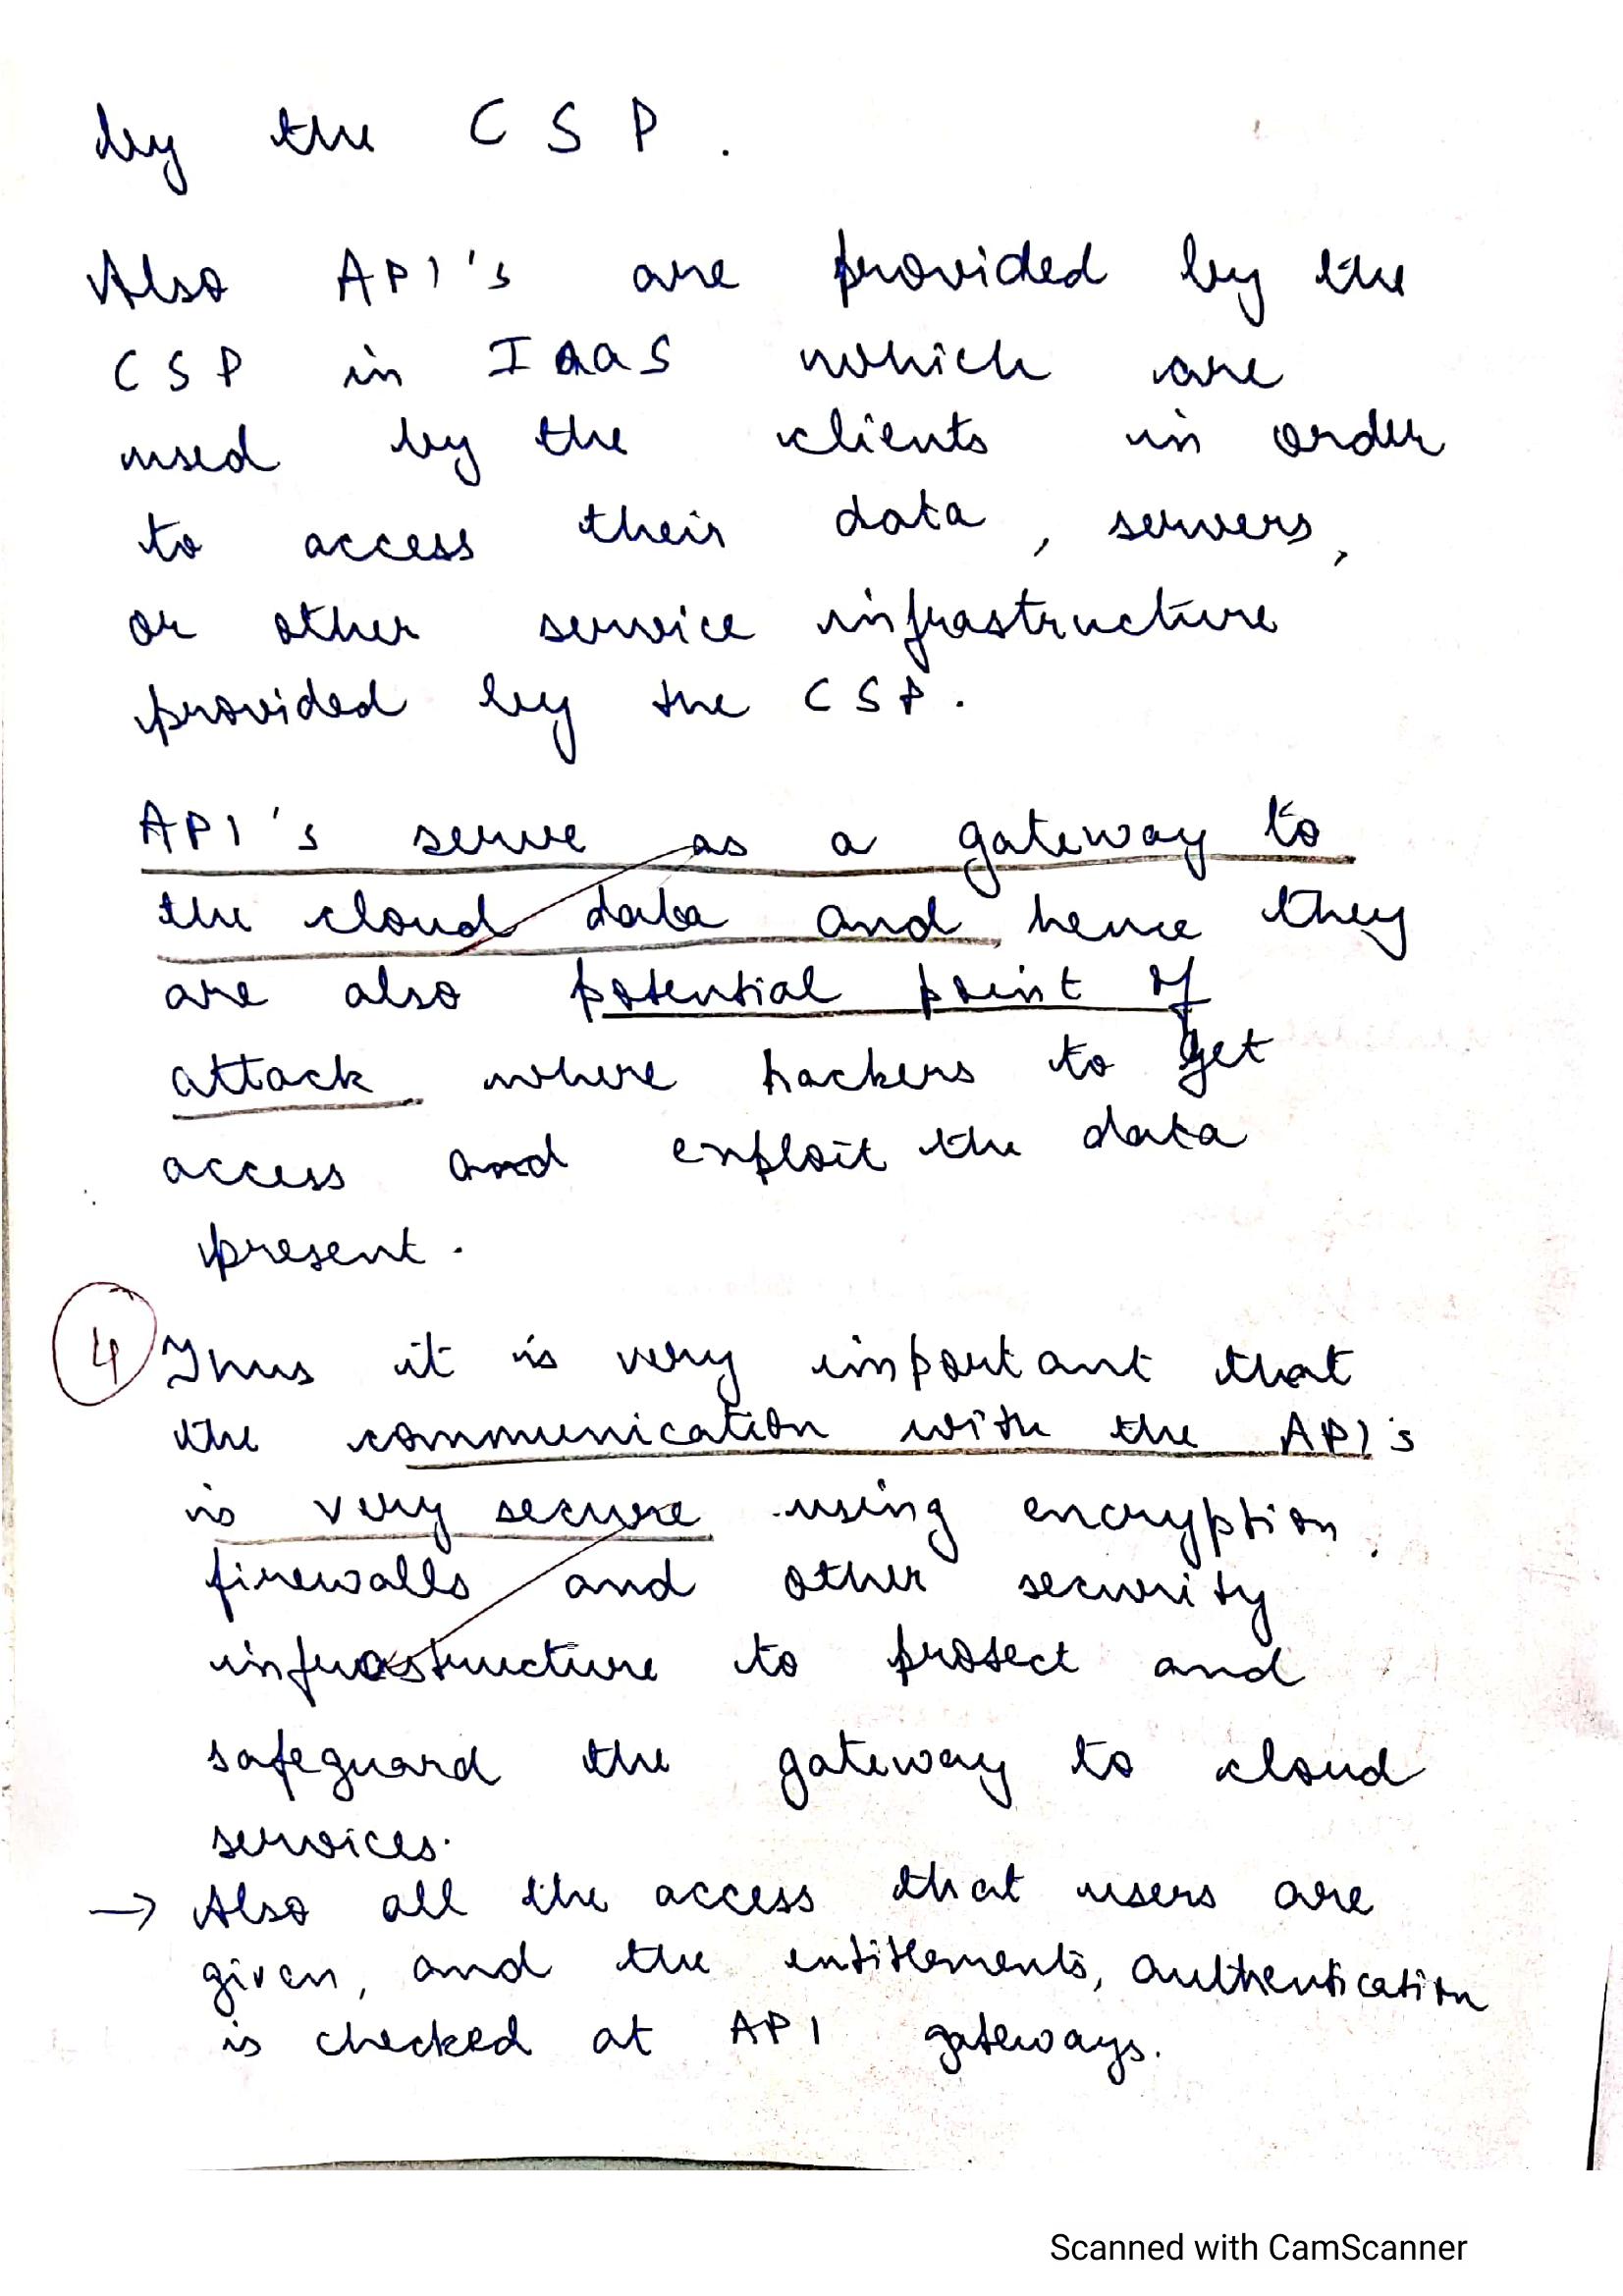 by the CSP.
Also API's are provided by the
CSP in IaaS which are
used by the clients in order
to access their data, servers,
or other service infrastructure
provided by the CSP.
API's serve as a gateway to
the cloud data and hence they
are also potential point of
attack where hackers to get
access and exploit the data
present.
4 Thus it is very important that
the communication with the API's
is very secure using encryption,
firewalls and other security
infrastructure to protect and
safeguard the gateway to cloud
services.
→ Also all the access that users are
given, and the entitlements, authentication
is checked at API gateways.
Scanned with CamScanner